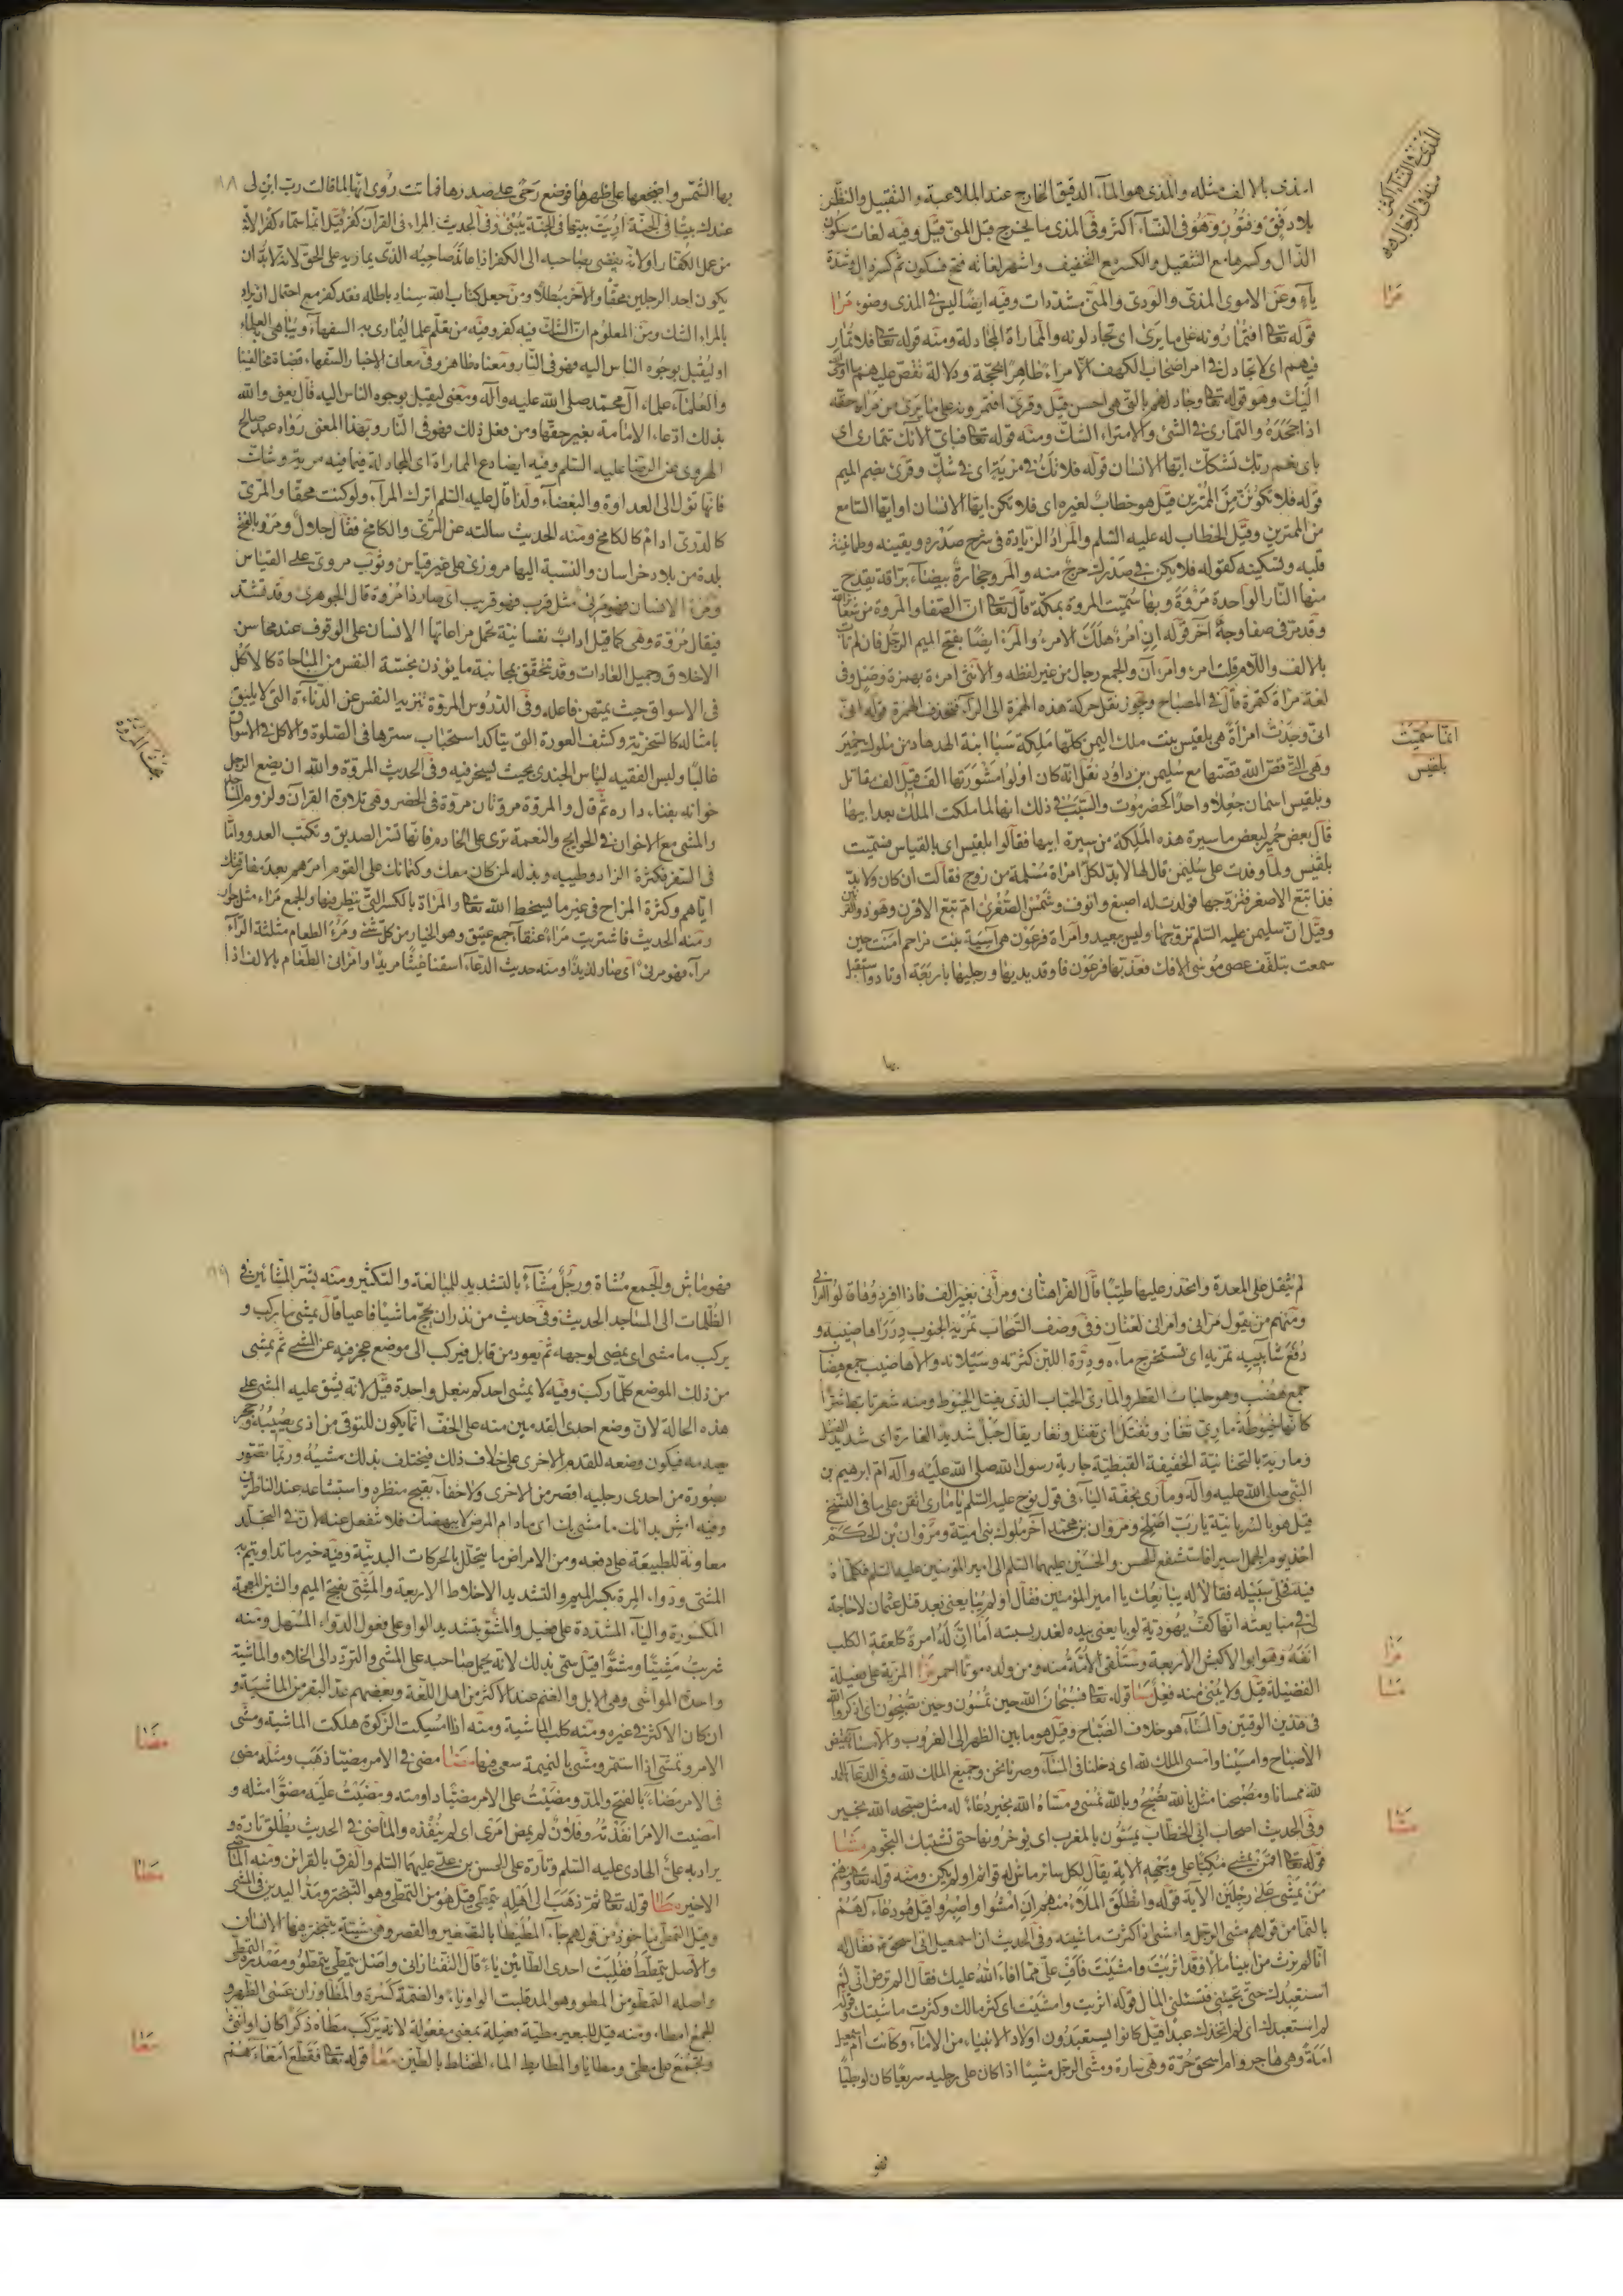 امذى بالالف مثله والمذى هو الماء الدقيق الخارج عند الملاعبة والتقبيل والنظر
بلا دفق وفتور وهو فى النساء اكثر وفى المذى ما يخرج قبل المنى قيل وفيه لغات سكون
الذال وكسرها مع التثقيل والكسر مع التخفيف واشهر لغاته فتح فسكون ثم كسر ذال وشدة
ياء وعن الاموى المذى والودى والمنى مشددات وفيه ايضا ليس فى المذى وضوء مرا
قوله تعالى افتمارونه على ما يرى اى تجادلونه والمماراة المجادلة ومنه قوله تعالى فلا تمار
فيهم اى لا تجادل فى امر اصحاب الكهف الا مراء ظاهرا بحجة ودلالة نقص عليهم ما اوحى
اليك وهو قوله تعالى وجادلهم بالتى هى احسن قيل وقرئ افتمرونه على ما يرى من مراه حقه
اذا جحده والتمارى فى الشئ والامتراء الشك ومنه قوله تعالى فباى الاءك تتمارى اى
باى نعم ربك تشكك ايها الانسان قوله فلا تك فى مرية اى فى شك وقرئ بضم الميم
قوله فلا تكونن من الممترين قيل هو خطاب لغيره اى فلا تكن ايها الانسان او ايها السامع
من الممترين وقيل الخطاب له عليه السلم والمراد الزيادة فى شرح صدره ويقينه وطمانينة
قلبه وتسكينه كقوله فلا يكن فى صدرك حرج منه والمرو حجارة بيضاء براقة يقدح
منها النار الواحدة مروة وبها سميت المروة بمكة قال تعالى ان الصفا والمروة من شعائر الله
وقد مر فى صفا وجه آخر قوله ان امرء هلك الامرء والمرء ايضا بفتح الميم الرجل فان لم تات
بالالف واللام قلت امرء وامرءآن والجمع رجال من غير لفظه والانثى امرءة بهمزة وصل وفى
لغة مراة كتمرة قال فى المصباح ويجوز نقل حركة هذه الهمزة الى الراء فتحذف الهمزة قوله
انى وجدت امراة هى بلقيس بنت ملك اليمن كلها ملكة سبا ابنة الهدهاد من ملوك حمير
وهى التى قص الله قصتها مع سليمن بن داود نقل انه كان اولوا مشورتها الف قيل الف مقاتل
وبلقيس اسمان جعلا واحدا كحضرموت والسبب فى ذلك انها لما ملكت الملك بعد ابيها
قال بعض حمير لبعض ما سيرة هذه الملكة من سيرة ابيها فقالوا بلقيس اى بالقياس فسميت
بلقيس ولما وفدت على سليمن قال لها لا بد لكل امراة مسلمة من زوج فقالت ان كان ولا بد
فذا تبع الاصغر فتزوجها فولدت له اصبغ وانوف وشمس الصغرى ام تبع الاقرن وهو ذو القرنين
وقيل ان سليمن عليه السلم تزوجها وليس ببعيد وامراة فرعون هى آسية بنت مزاحم امنت حين
سمعت بتلقف عصى موسى الافك فعذبها فرعون فاوقد يديها ورجليها باربعة اوتاد واستقبل
بها
المذى فى النساء اكثر منه فى الرجال
مرا
انما سميت
بلقيس
بها الشمس واضجعها على ظهرها فوضع رحى على صدرها فماتت روى انها لما قالت رب ابن لى
عندك بيتا فى الجنة اريت بيتها فى الجنة يبنى وفى الحديث المراء فى القرآن كفر قيل انما سماه كفرا لانه
من عمل الكفار او لانه يفضى بصاحبه الى الكفر اذا عاند صاحبه الذى يماريه على الحق لانه لا بد ان
يكون احد الرجلين محقا والآخر مبطلا ومن جعل كتاب الله سناد باطله فقد كفر مع احتمال ان يراد
بالمراء الشك ومن المعلوم ان الشك فيه كفر وفيه من تعلم علما ليمارى به السفهاء ويباهى به العلماء
او ليقبل بوجوه الناس اليه فهو فى النار ومعناه ظاهر وفى معانى الاخبار السفهاء قضاة مخالفينا
والعلماء علماء آل محمد صلى الله عليه وآله ومعنى ليقبل بوجوه الناس اليه قال يعنى والله
بذلك ادعاء الامامة بغير حقها ومن فعل ذلك فهو فى النار وبهذا المعنى رواه عبد صالح
الهروى عن الرضا عليه السلم وفيه ايضا دع المماراة اى المجادلة فيما فيه مرية وشك
فانها تؤل الى العداوة والبغضاء ولذا قال عليه السلم اترك المراء ولو كنت محقا والمرى
كالدرى ادام كالكامخ ومنه الحديث سالته عن المرى والكامخ فقال حلال ومرو بالفتح
بلدة من بلاد خراسان والنسبة اليها مروزى على غير قياس وثوب مروى على القياس
ومرء الانسان فهو مرئ مثل قرب فهو قريب اى صار ذا مروة قال الجوهرى وقد تشدد
فيقال مروة وهى كما قيل اداب نفسانية تحمل مراعاتها الانسان على الوقوف عند محاسن
الاخلاق وجميل العادات وقد تتحقق بمجانبة ما يؤذن بخسة النفس من المباحات كالاكل
فى الاسواق حيث يمتهن فاعله وفى الدروس المروة تنزيه النفس عن الدناءة التى لا يليق
بامثاله كالسخرية وكشف العورة التى يتاكد استحباب سترها فى الصلوة والاكل فى الاسواق
غالبا ولبس الفقيه لباس الجندى بحيث يسخر فيه وفى الحديث المروة والله ان يضع الرجل
خوانه بفناء داره ثم قال والمروة مروتان مروة فى الحضر وهى تلاوة القرآن ولزوم المساجد
والمشى مع الاخوان فى الحوايج والنعمة ترى على الخادم فانها تسر الصديق وتكبت العدو واما
فى السفر فكثرة الزاد وطيبه وبذله لمن كان معك وكتمانك على القوم امرهم بعد مفارقتك
اياهم وكثرة المزاح فى غير ما يسخط الله تعالى والمراة بالكسر التى ينظر فيها والجمع مراء مثل جوار
ومنه الحديث فاشتريت مراء عتقا جمع عتيق وهو الخيار من كل شئ ومرؤ الطعام مثلثة الراء
مراء فهو مرئ اى صار لذيذا ومنه حديث الدعاء اسقنا غيثا مريئا وامرانى الطعام بالالف اذا
لم يثقل على المعدة وانحدر عليها طيبا قال الفراء هنانى ومرانى بغير الف فاذا افرد وفاقالوا امرانى
ومنهم من يقول مرانى وامرانى لغتان وفى وصف السحاب تمريه الجنوب درر اهاضيبه و
دفع شابيبه تمريه اى تستخرج ماءه ودرة اللبن كثرته وسيلانه والاهاضيب جمع هضاب
جمع هضب وهو حلبات القطر والمارى الحباب الذى يفتل الخيوط ومنه شعر تابط شرا
كانها خيوطة مارى تغار وتفتل اى تفتل وتغار يقال حبل شديد الغارة اى شديد الفتل
ومارية بالتحتانية الخفيفة القبطية جارية رسول الله صلى الله عليه وآله ام ابرهيم بن
النبى صلى الله عليه وآله ومارى بخفة الياء فى قول نوح عليه السلم يا مارى اتقن على ما فى النسخ
قيل هو بالسريانية يا رب اصلح ومروان بن محمد آخر ملوك بنى امية ومروان بن الحكم
اخذ يوم الجمل اسيرا فاستشفع الحسن والحسين عليهما السلم الى امير المؤمنين عليه السلم فكلماه
فيه فخلى سبيله فقالا له يبايعك يا امير المؤمنين فقال اولم يبايعنى بعد قتل عثمان لا حاجة
لى فى مبايعته انها كف يهودية لو بايعنى بيده لغدر بسبته اما ان له امرة كلعقة الكلب
انفه وهو ابو الاكبش الاربعة وستلقى الامة منه ومن ولده موتا احمر مزا المزية على فعيلة
الفضيلة قيل ولا يبنى منه فعل مسا قوله تعالى فسبحان الله حين تمسون وحين تصبحون اى اذكروا الله
فى هذين الوقتين والمساء هو خلاف الصباح وقيل هو ما بين الظهر الى الغروب والامساء نقيض
الاصباح وامسينا وامسى الملك لله اى دخلنا فى المساء وصرنا نحن وجميع الملك لله وفى الدعاء الحمد
لله ممسانا ومصبحنا مثل بالله نصبح وبالله نمسى ومساه الله بخير دعاء له مثل صبحه الله بخير
وفى الحديث اصحاب ابى الخطاب يمسون بالمغرب اى يوخرونها حتى تشتبك النجوم مشا
قوله تعالى افمن يمشى مكبا على وجهه الاية يقال لكل سائر ماش له قوائم اولم يكن ومنه قوله تعالى ومنهم
من يمشى على رجلين الآية قوله وانطلق الملاء منهم ان امشوا واصبروا قيل هو دعاء لهم
بالنماء من قولهم مشى الرجل وامشى اذا كثرت ماشيته وفى الحديث ان اسمعيل اتى اسحق فقال له
انا لم نرث من ابينا مالا وقد اثريت وامشيت فافئ على مما افاء الله عليك فقال الم ترض انى لم
استعبدك حتى تجيئنى فتسئلنى المال قوله اثريت وامشيت اى كثر مالك وكثرت ماشيتك وقوله
لم استعبدك اى لم اتخذك عبدا قيل كانوا يستعبدون اولاد الانبياء من الاماء وكانت ام اسمعيل
امة وهى هاجر وام اسحق حرة وهى سارة ومشى الرجل مشيا اذا كان على رجليه سريعا كان او بطيئا
فهو
مزا
مسا
مشا
فهو ماش والجمع مشاة ورجل مشاء بالتشديد للمبالغة والتكثير ومنه بشر المشائين فى
الظلمات الى المساجد الحديث وفى حديث من نذر ان يحج ماشيا فاعيا قال يمشى ما ركب و
يركب ما مشى اى يمضى لوجهه ثم يعود من قابل فيركب الى موضع عجز فيه عن المشى ثم يمشى
من ذلك الموضع كلما ركب وفيه لا يمشى احدكم بنعل واحدة قيل لانه يشق عليه المشى على
هذه الحالة لان وضع احدى القدمين منه على الخف انما يكون للتوقى من اذى يصيبه وحجر
يصدمه فيكون وضعه للقدم الاخرى على خلاف ذلك فيختلف بذلك مشيه وربما تصور
بصورة من احدى رجليه اقصر من الاخرى ولا خفاء بقبح منظره واستبشاعه عند الناظرين
وفيه امش بدائك ما مشى بك اى ما دام المرض لا يبهضك فلا تنفعل عنه لان فى التجلد
معاونة للطبيعة على دفعه ومن الامراض ما يتحلل بالحركات البدنية وفيه خير ما تداويتم به
المشى ودواء المرة بكسر الميم والتشديد الاخلاط الاربعة والمشى بفتح الميم والشين المعجمة
المكسورة والياء المشددة على فعيل والمشو بتشديد الواو على فعول الدواء المسهل ومنه
شربت مشيا ومشوا قيل سمى بذلك لانه يحمل صاحبه على المشى والتردد الى الخلاء والماشية
واحدة المواشى وهى الابل والغنم عند الاكثر من اهل اللغة وبعضهم عد البقر من الماشية و
ان كان الاكثر فى غيره ومنه كلب الماشية ومنه اذا امسكت الزكوة هلكت الماشية ومشى
الامر وتمشى اذا استمر ومشى بالنميمة سعى فيها مضا مضى فى الامر مضيا ذهب ومثله مضى
فى الامر مضاء بالفتح والمد ومضيت على الامر مضيا داومته ومضيت عليه مضوا مثله و
امضيت الامر انفذته وفلان لم يمض امرى اى لم ينفذه والماضى فى الحديث يطلق تارة و
يراد به على الهادى عليه السلم وتارة على الحسن بن على عليهما السلم والفرق بالقرائن ومنه الماضى
الاخير مطا قوله تعالى ثم ذهب الى اهله يتمطى قيل هو من التمطى وهو التبختر ومد اليدين فى المشى
وقيل التمطى ماخوذ من قولهم جاء المطيطا بالتصغير والقصر وهى مشية يتبختر فيها الانسان
والاصل يتمطط فقلبت احدى الطائين ياء قال التفتازانى واصل يتمطى يتمطو ومصدره التمطى
واصله التمطو من المطو وهو المد قلبت الواو ياء والضمة كسرة والمطا وزان عصى الظهر و
الجمع امطاء ومنه قيل للبعير مطية فعيلة بمعنى مفعولة لانه يركب مطاه ذكرا كان او انثى
ويجمع على مطى ومطايا والمطايط الماء المختلط بالطين معا قوله تعالى فقطع امعاءهم
مضا
مطا
معا